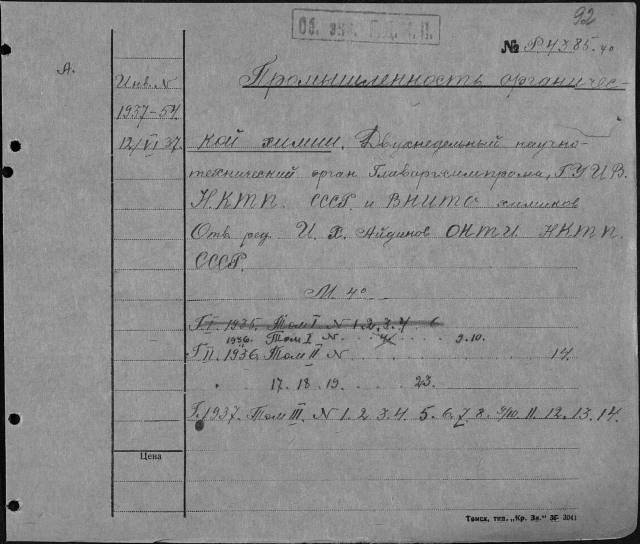 92
№ Р4385. 40
А.
Инв. N
Промышленность органичес-
1937–54
12/VI 37
кой химии. Двухнедельный научно-
технический орган Главоргхимпрома, ГУУВ
НКТП. СССР. и ВНИТО химиков
Отв. ред. И. Х. Айдинов ОНТИ НКТП.
СССР.
М 4о
Г.I. 1935. Том I N 1. 2. 3. 4 6
1936. Том I N . . . . . 9.10.
Г II. 1936. Том II N . . . . . . 14.
17. 18. 19. 23.
Г. 1937. Том III. N 1. 2. 3. 4. 5. 6. 7. 8. 9/10. 11. 12. 13. 14.
Цена
Томск, тип. „Кр. Зн."